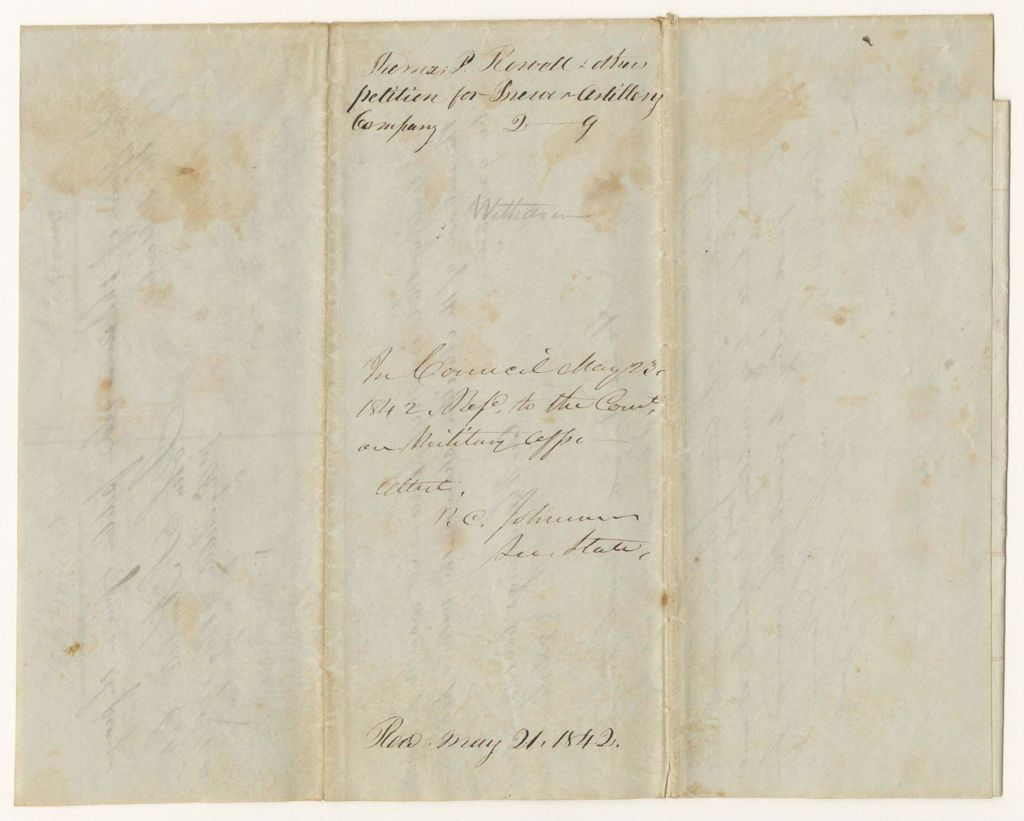 Thomas P. Rowell & others
petition for Brewer Artillery
Company 2 - 9
Withdrawn
In Council May 23,
1842 Refd. to the Comt,
on Military Affs.
Attest,
P. C. Johnson
Sec. State,
Recd. May 21, 1842.